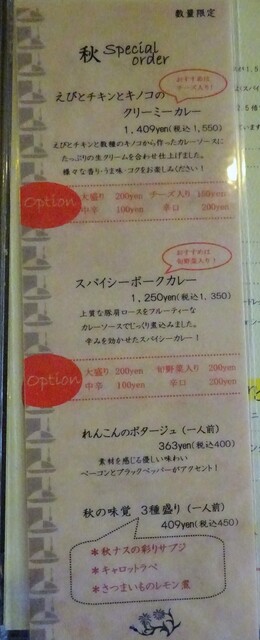 数量限定
秋 Special order
おすすめは
チーズ入り!
えびとチキンとキノコの
クリーミーカレー
1,409yen(税込1,550)
えびとチキンと数種のキノコから作ったカレーソースに
たっぷりの生クリームを合わせ仕上げました。
様々な香り・うま味・コクをお楽しみください!
Option
大盛り 200yen チーズ入り 100yen
中辛 100yen 辛口 200yen
おすすめは
旬野菜入り!
スパイシーポークカレー
1,250yen(税込1,350)
上質な豚肩ロースをフルーティーな
カレーソースでじっくり煮込みました。
辛みを効かせたスパイシーカレー!
Option
大盛り 200yen 旬野菜入り 200yen
中辛 100yen 辛口 200yen
れんこんのポタージュ(一人前)
363yen(税込400)
素材を感じる優しい味わい
ベーコンとブラックペッパーがアクセント!
秋の味覚 3種盛り(一人前)
409yen(税込450)
*秋ナスの彩りサブジ
*キャロットラペ
*さつまいものレモン煮